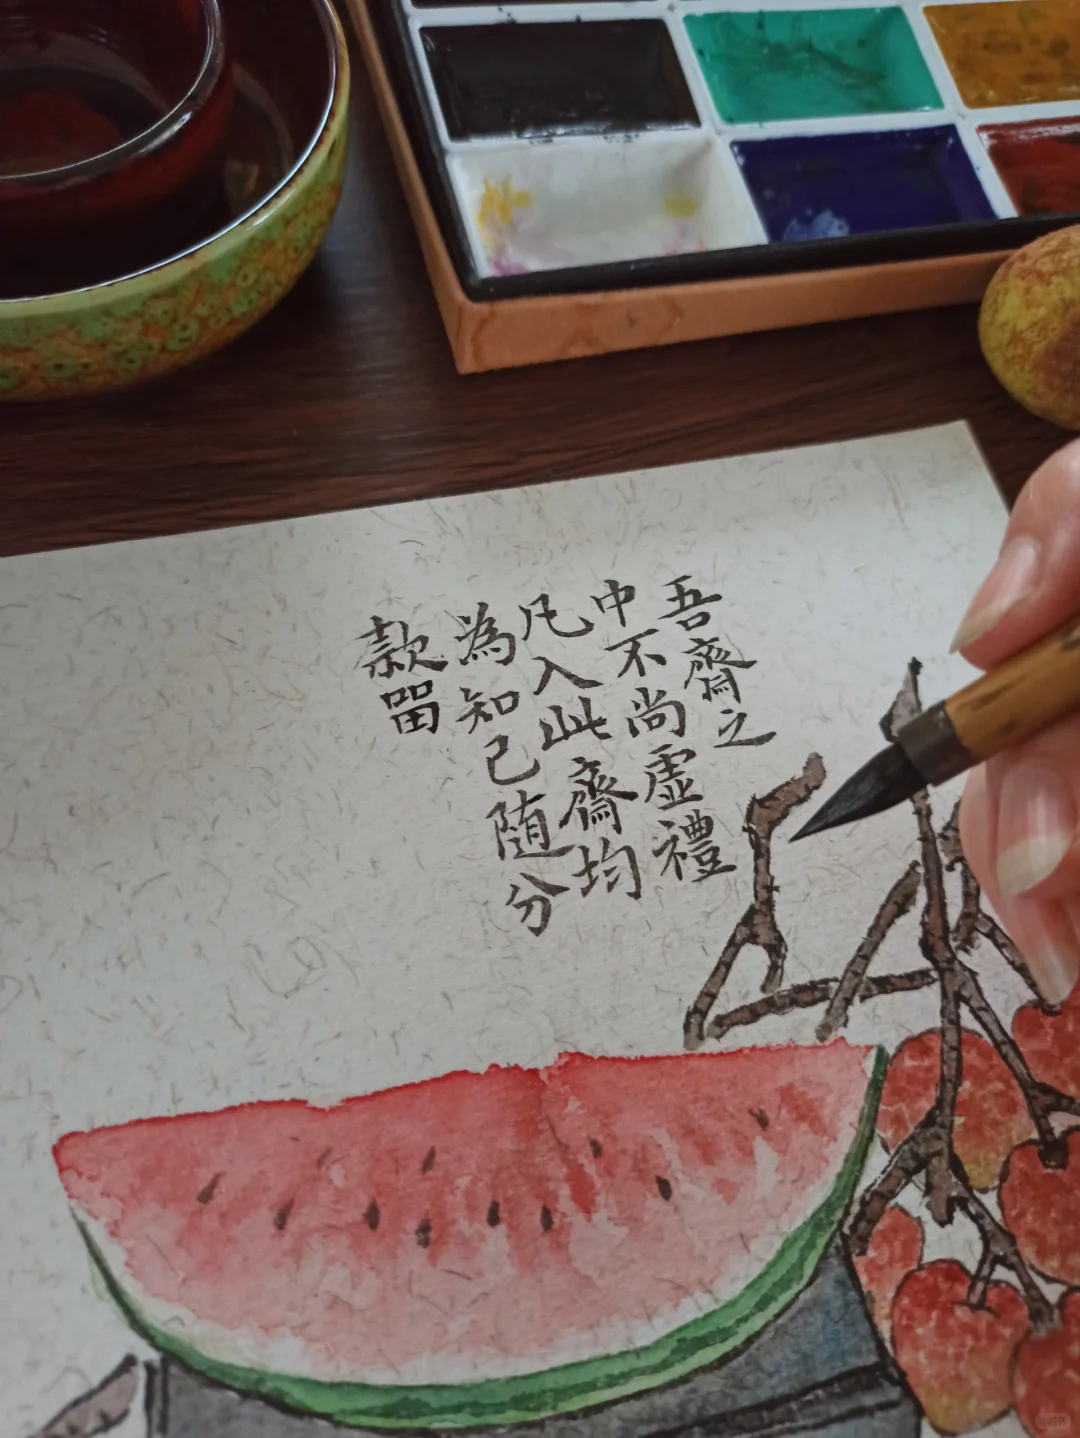 吾齋之
中不尚虛禮
凡入此齋均
為知己隨分
款留